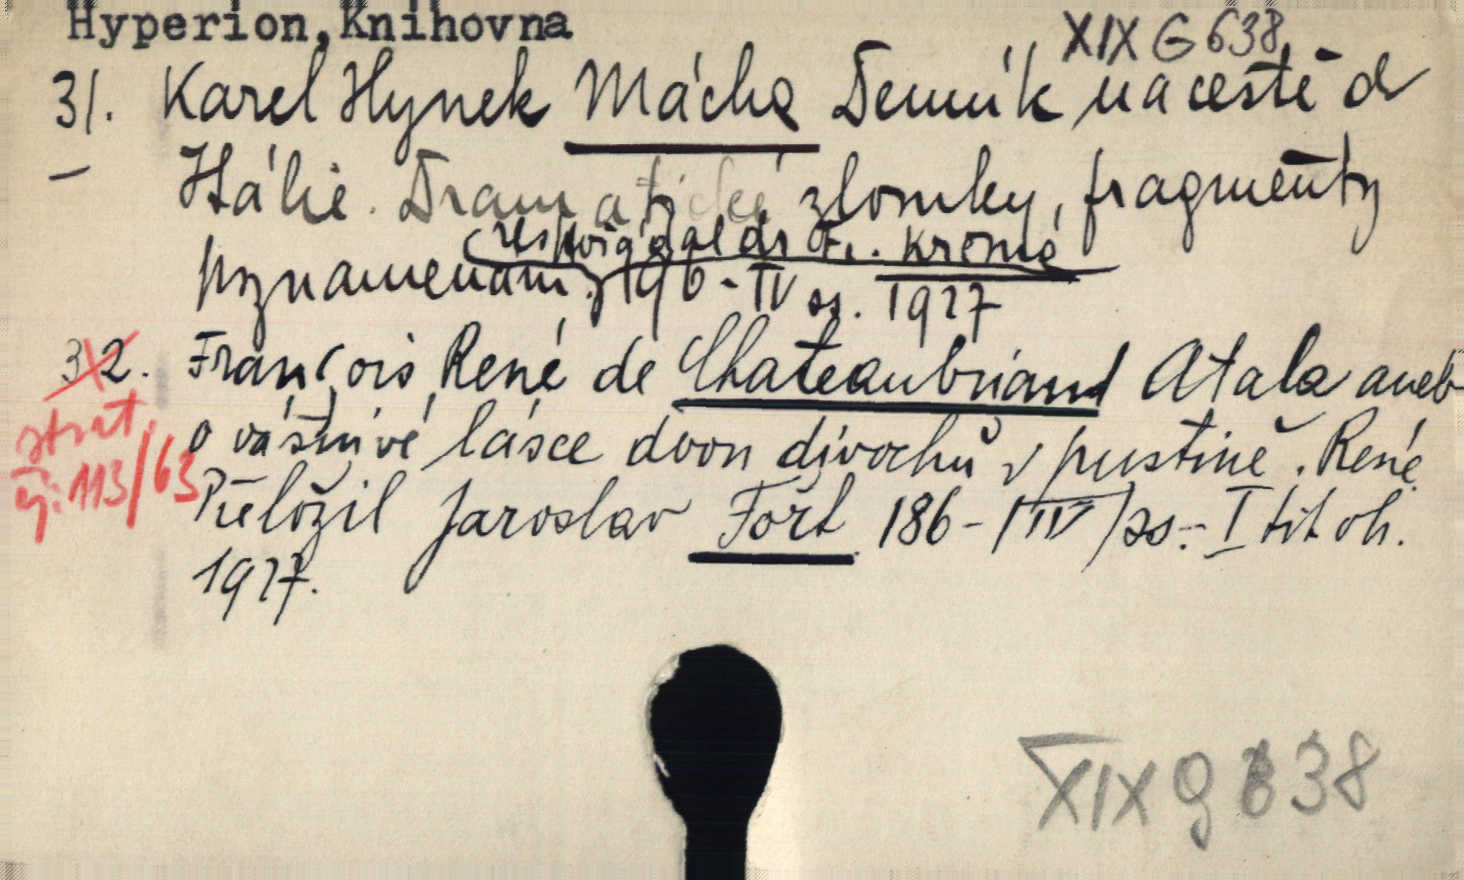 Hyperion,Knihovna
XIX G 638
31. Karel Hynek Mácha Denník na cestě d
Itálie. Dramatické zlomky, fragmenty
Fr. Krčma
poznamenání. 196-IV ss. 1927
32. François René de Chateaubriand Atala aneb
o vášnivé lásce dvou divochů v pustině. René.
Přeložil Jaroslav Fořt 186-(IV) ss.-I tit ob.
1927.
ztrát.
čj. 113/63
XIX g 638